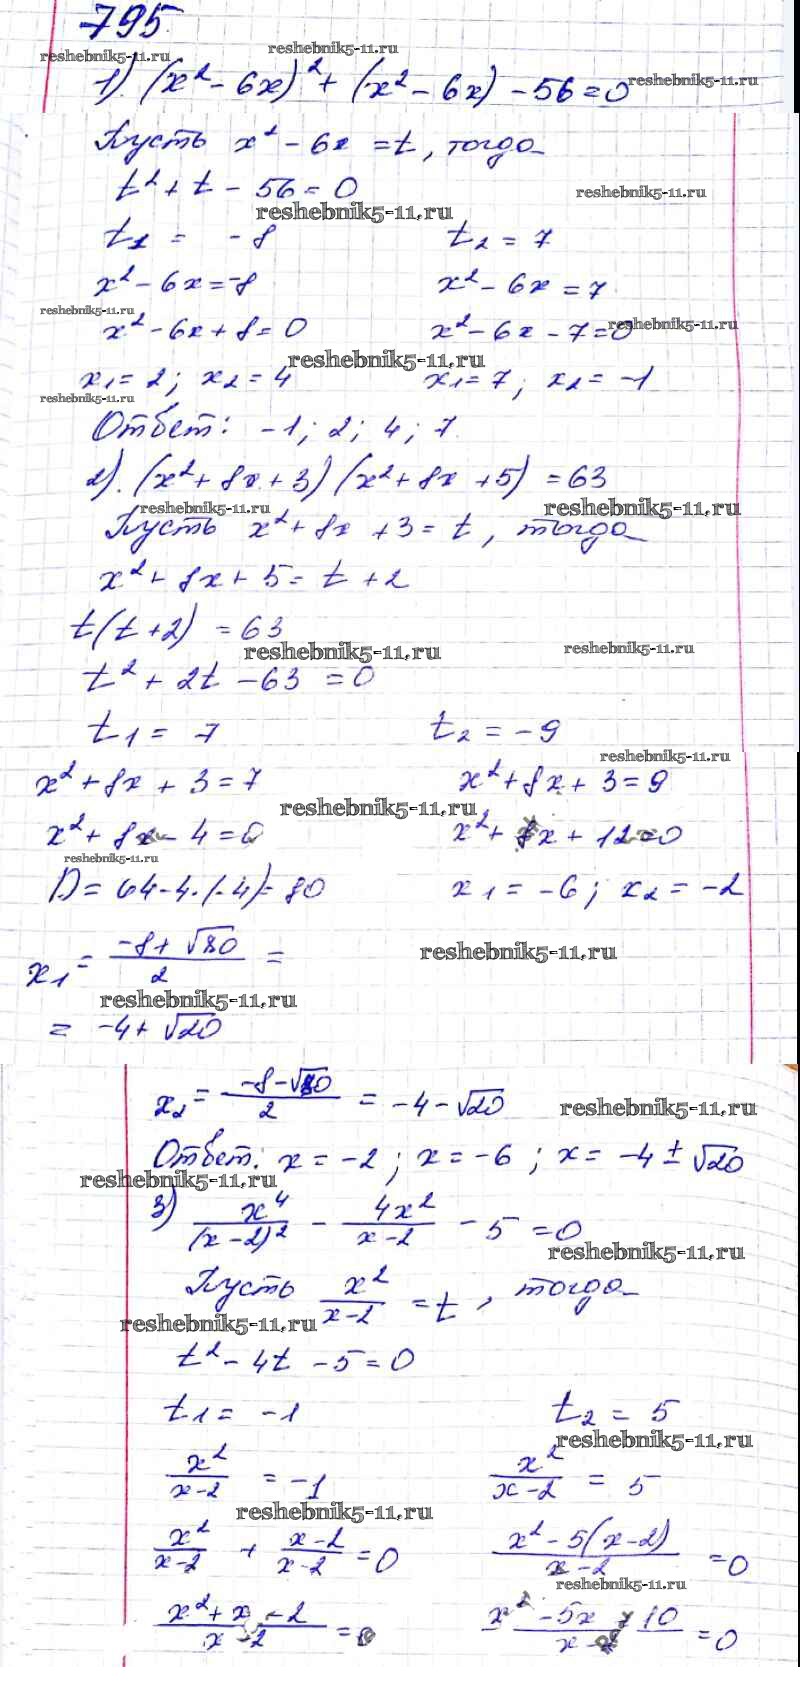 795
reshebnik5-11.ru
reshebnik5-11.ru
1). (x² - 6x)² + (x² - 6x) - 56 = 0
reshebnik5-11.ru
Пусть x² - 6x = t, тогда
t² + t - 56 = 0
reshebnik5-11.ru
reshebnik5-11.ru
t₁ = -8 t₂ = 7
x² - 6x = -8 x² - 6x = 7
reshebnik5-11.ru
x² - 6x + 8 = 0 x² - 6x - 7 = 0
reshebnik5-11.ru
reshebnik5-11.ru
x₁ = 2; x₂ = 4 x₁ = 7; x₂ = -1
reshebnik5-11.ru
Ответ: -1; 2; 4; 7.
2). (x² + 8x + 3)(x² + 8x + 5) = 63
reshebnik5-11.ru
reshebnik5-11.ru
Пусть x² + 8x + 3 = t, тогда
x² + 8x + 5 = t + 2
t(t + 2) = 63
reshebnik5-11.ru
reshebnik5-11.ru
t² + 2t - 63 = 0
t₁ = 7 t₂ = -9
reshebnik5-11.ru
x² + 8x + 3 = 7 x² + 8x + 3 = 9
reshebnik5-11.ru
x² + 8x - 4 = 0 x² + 8x + 12 = 0
reshebnik5-11.ru
D = 64 - 4·(-4) = 80 x₁ = -6; x₂ = -2
x₁ = (-8 + √80)/2 =
reshebnik5-11.ru
reshebnik5-11.ru
= -4 + √20
x₂ = (-8 - √80)/2 = -4 - √20
reshebnik5-11.ru
Ответ: x = -2; x = -6; x = -4 ± √20
reshebnik5-11.ru
3) x⁴/(x - 2)² - 4x²/(x - 2) - 5 = 0
reshebnik5-11.ru
Пусть x²/(x - 2) = t, тогда
reshebnik5-11.ru
t² - 4t - 5 = 0
t₁ = -1 t₂ = 5
reshebnik5-11.ru
x²/(x - 2) = -1 x²/(x - 2) = 5
reshebnik5-11.ru
x²/(x - 2) + (x - 2)/(x - 2) = 0 (x² - 5(x - 2))/(x - 2) = 0
reshebnik5-11.ru
(x² + x - 2)/(x - 2) = 0 (x² - 5x + 10)/(x - 2) = 0